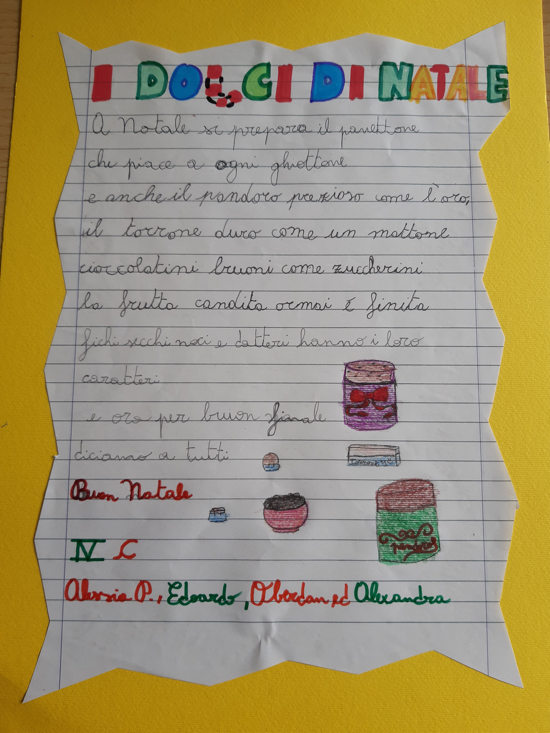 I DOLCI DI NATALE
A Natale si prepara il panettone
che piace a ogni ghiottone
e anche il pandoro prezioso come l'oro,
il torrone duro come un mattone
cioccolatini buoni come zuccherini
la frutta candita ormai è finita
fichi secchi noci e datteri hanno i loro
caratteri
e ora per buon finale
diciamo a tutti
Buon Natale
IV C
Alessia P., Edoardo, Oberdan, ed Alexandra
pandoro